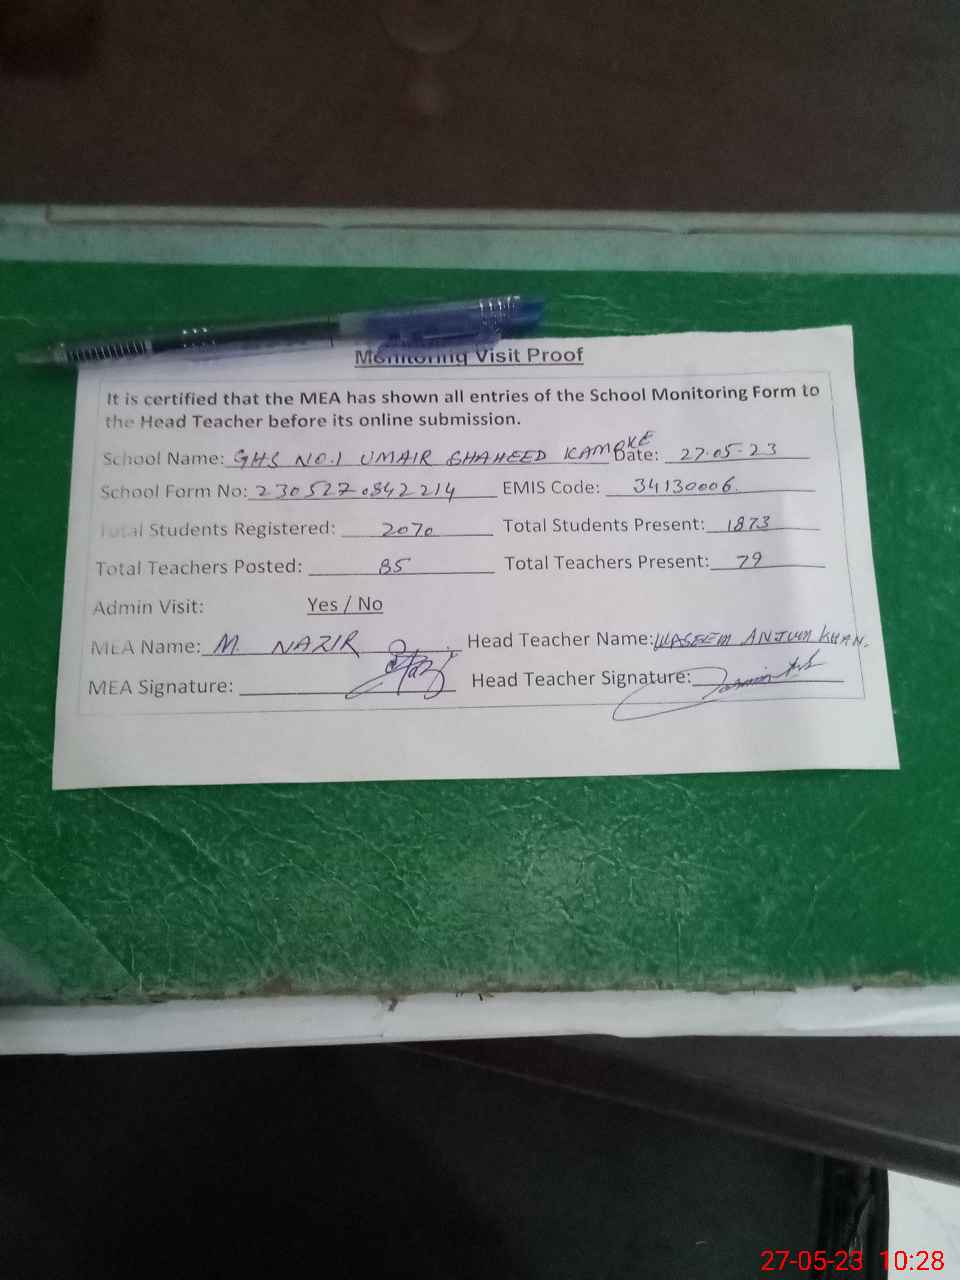 Monitoring Visit Proof
It is certified that the MEA has shown all entries of the School Monitoring Form to
the Head Teacher before its online submission.
School Name: GHS NO.1 UMAIR SHAHEED KAMOKE Date: 27-05-23
School Form No: 2305270842214 EMIS Code: 34130006
Total Students Registered: 2070 Total Students Present: 1873
Total Teachers Posted: 85 Total Teachers Present: 79
Admin Visit: Yes / No
MEA Name: M. NAZIR Head Teacher Name: WASEEM ANJUM KHAN.
MEA Signature: Head Teacher Signature:
27-05-23 10:28